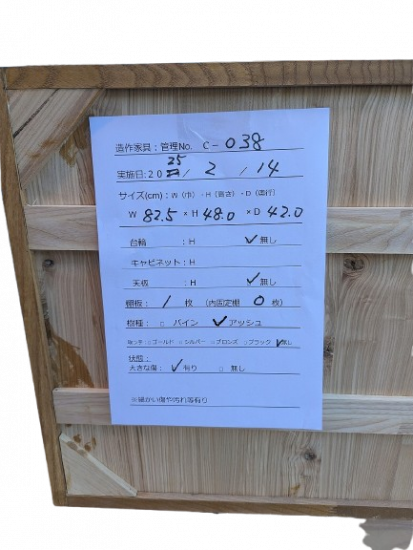 造作家具：管理No. C-038
実施日:2025/2/14
サイズ(cm)：W（巾）・H（高さ）・D（奥行）
W 82.5 × H 48.0 × D 42.0
台輪 ：H ✓無し
キャビネット：H
天板 ：H ✓無し
棚板：1枚 （内固定棚 0枚）
樹種：○ パイン ✓アッシュ
取っ手：○ゴールド ○シルバー ○ブロンズ ○ブラック ✓無し
状態：
大きな傷：✓有り ○ 無し
※細かい傷や汚れ等有り